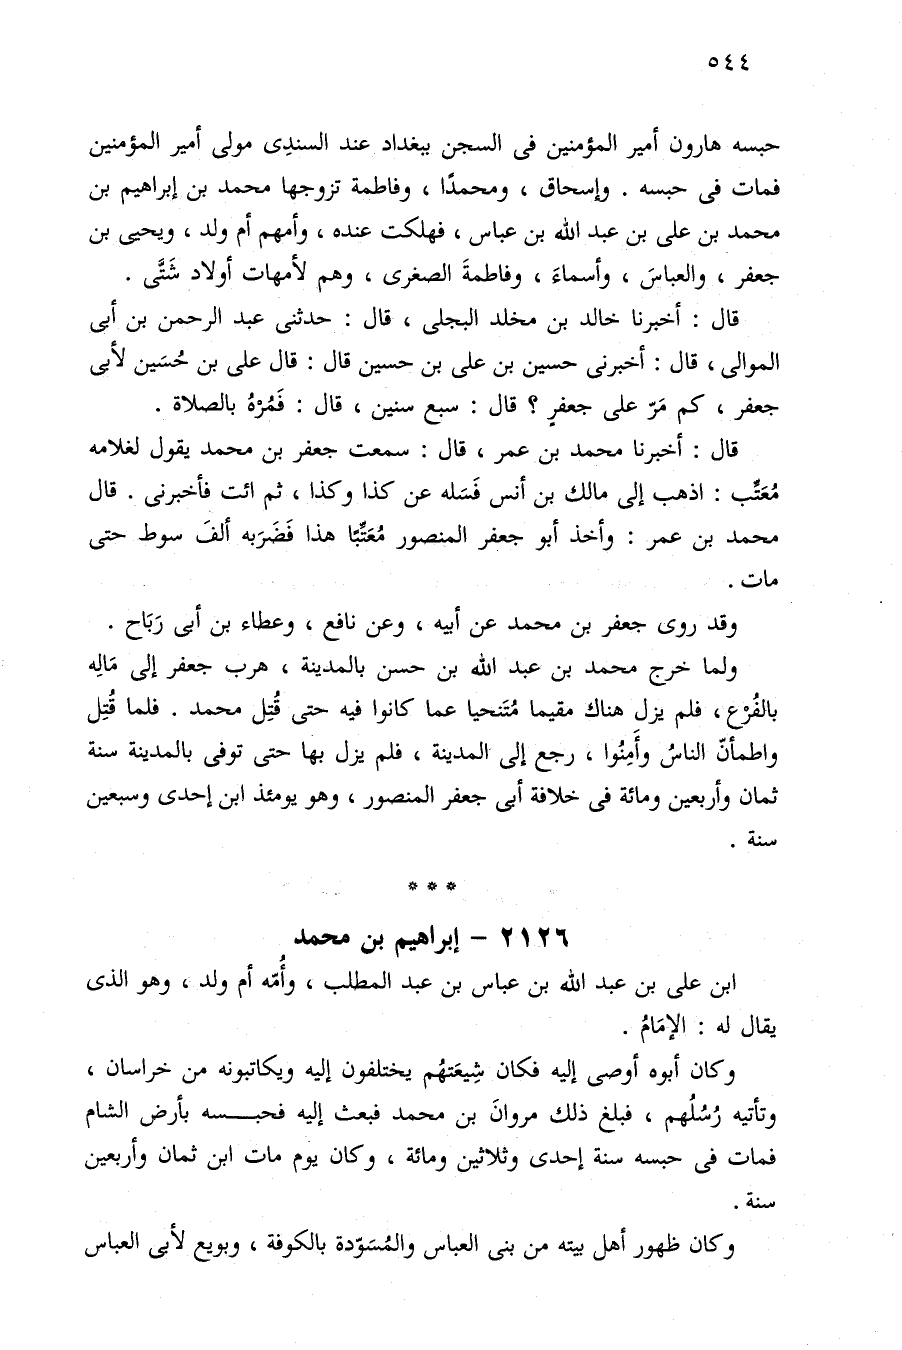 ٥٤٤
حبسه هارون أمير المؤمنين فى السجن ببغداد عند السندِى مولى أمير المؤمنين
فمات فى حبسه . وإسحاق ، ومحمدًا ، وفاطمة تزوجها محمد بن إبراهيم بن
محمد بن على بن عبد الله بن عباس ، فهلكت عنده ، وأمهم أم ولد ، ويحيى بن
جعفر ، والعباسَ ، وأسماءَ ، وفاطمةَ الصغرى ، وهم لأمهات أولاد شَتَّى .
قال : أخبرنا خالد بن مخلد البجلى ، قال : حدثنى عبد الرحمن بن أبى
الموالى ، قال : أخبرنى حسين بن على بن حسين قال : قال على بن حُسَين لأبى
جعفر ، كم مَرّ على جعفرٍ ؟ قال : سبع سنين ، قال : فَمُرْهُ بالصلاة .
قال : أخبرنا محمد بن عمر ، قال : سمعت جعفر بن محمد يقول لغلامه
مُعَتِّب : اذهب إلى مالك بن أنس فَسَله عن كذا وكذا ، ثم ائت فأخبرنى . قال
محمد بن عمر : وأخذ أبو جعفر المنصور مُعَتِّبًا هذا فَضَرَبه ألفَ سوط حتى
مات .
وقد روى جعفر بن محمد عن أبيه ، وعن نافع ، وعطاء بن أبى رَبَاح .
ولما خرج محمد بن عبد الله بن حسن بالمدينة ، هرب جعفر إلى مَالِه
بالفُرْع ، فلم يزل هناك مقيما مُتَنحيا عما كانوا فيه حتى قُتِل محمد . فلما قُتِل
واطمأنّ الناسُ وأَمِنُوا ، رجع إلى المدينة ، فلم يزل بها حتى توفى بالمدينة سنة
ثمان وأربعين ومائة فى خلافة أبى جعفر المنصور ، وهو يومئذ ابن إحدى وسبعين
سنة .
* * *
٢١٢٦ - إبراهيم بن محمد
ابن على بن عبد الله بن عباس بن عبد المطلب ، وأُمّه أم ولد ، وهو الذى
يقال له : الإمَامُ .
وكان أبوه أوصى إليه فكان شِيعَتهُم يختلفون إليه ويكاتبونه من خراسان ،
وتأتيه رُسُلُهم ، فبلغ ذلك مروانَ بن محمد فبعث إليه فحبـــسه بأرض الشام
فمات فى حبسه سنة إحدى وثلاثين ومائة ، وكان يوم مات ابن ثمان وأربعين
سنة .
وكان ظهور أهل بيته من بنى العباس والمُسَوّدة بالكوفة ، وبويع لأبى العباس